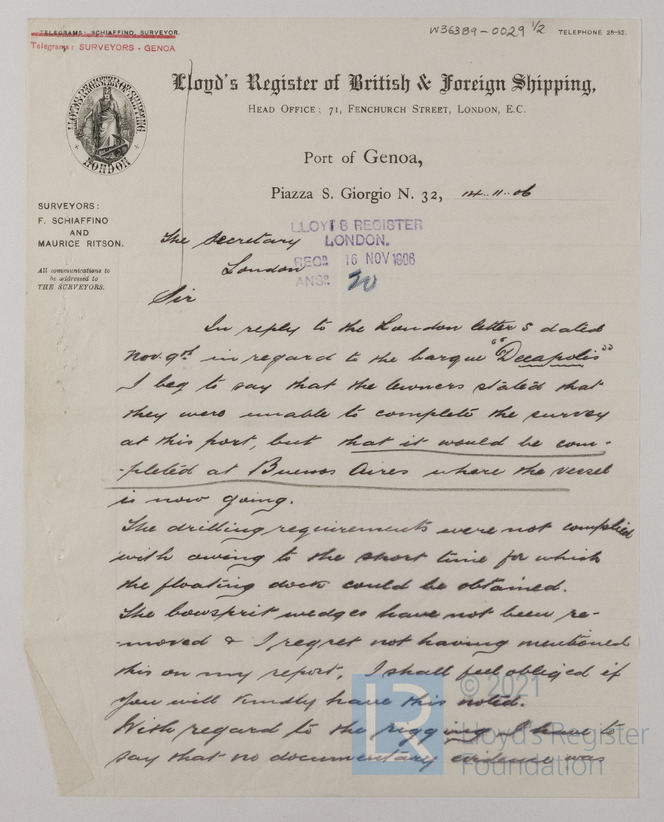 TELEGRAMS: SCHIAFFINO, SURVEYOR.
Telegrams: SURVEYORS - GENOA
W3G3B9-0029 1/2
TELEPHONE 28-52.
LLOYD'S REGISTER OF SHIPPING
LONDON
Lloyd's Register of British & Foreign Shipping,
HEAD OFFICE: 71, FENCHURCH STREET, LONDON, E.C.
Port of Genoa,
Piazza S. Giorgio N. 32, 14..11..06
SURVEYORS:
F. SCHIAFFINO
AND
MAURICE RITSON.
All communications to
be addressed to
THE SURVEYORS.
LLOYD'S REGISTER
LONDON.
RECD. 16 NOV 1906
ANSD.
The Secretary
London
Sir
In reply to the London letter S dated
Nov. 9th in regard to the barque "Decapolis"
I beg to say that the owners stated that
they were unable to complete the survey
at this port, but that it would be com-
-pleted at Buenos Aires where the vessel
is now going.
The drilling requirements were not complied
with owing to the short time for which
the floating dock could be obtained.
The bowsprit wedges have not been re-
-moved & I regret not having mentioned
this on my report, I shall feel obliged if
you will kindly have this noted.
With regard to the rigging I have to
say that no documentary evidence was
LR
© 2021
Lloyd's Register
Foundation